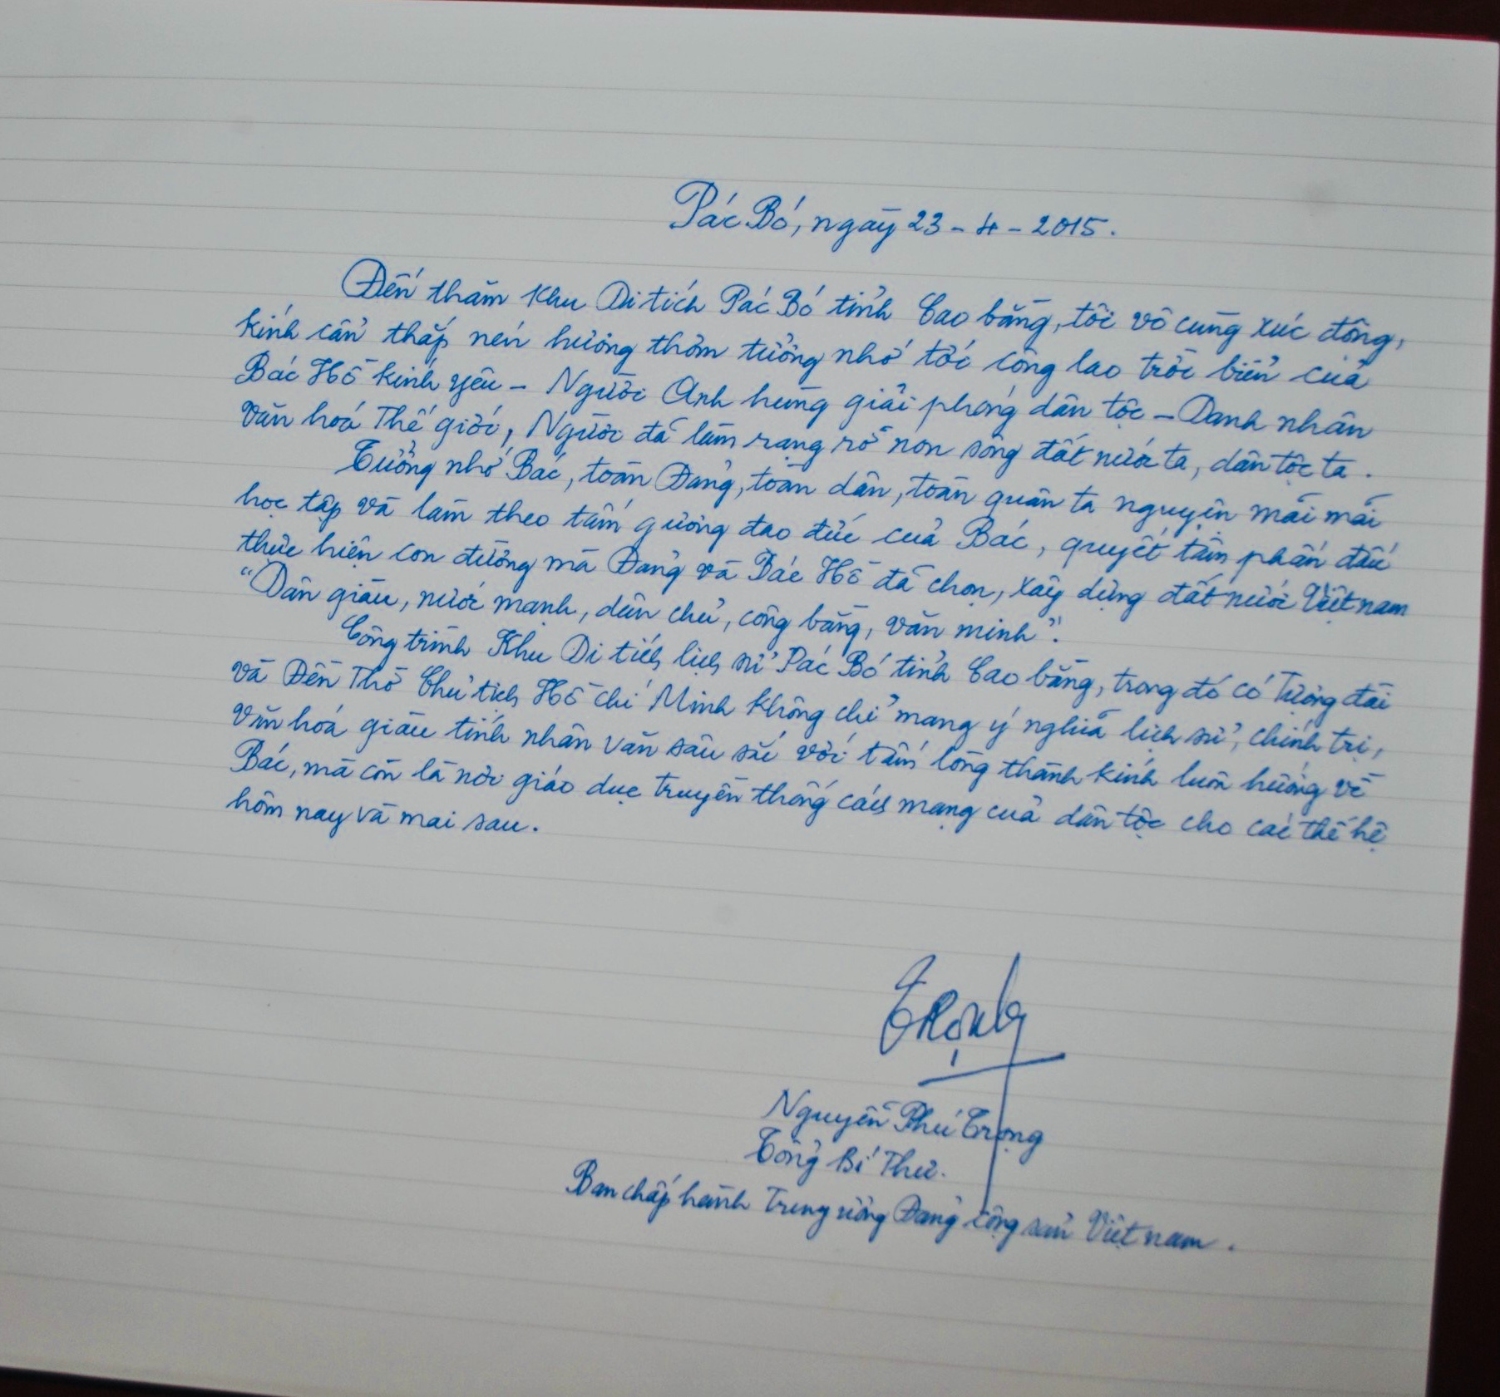 Pác Bó, ngày 23-4-2015.
Đến thăm Khu Di tích Pác Bó tỉnh Cao bằng, tôi vô cùng xúc động,
kính cẩn thắp nén hương thơm tưởng nhớ tới công lao trời biển của
Bác Hồ kính yêu - Người Anh hùng giải phóng dân tộc - Danh nhân
Văn hoá Thế giới, Người đã làm rạng rỡ non sông đất nước ta, dân tộc ta.
Tưởng nhớ Bác, toàn Đảng, toàn dân, toàn quân ta nguyện mãi mãi
học tập và làm theo tấm gương đạo đức của Bác, quyết tâm phấn đấu
thực hiện con đường mà Đảng và Bác Hồ đã chọn, xây dựng đất nước Việt nam
"Dân giàu, nước mạnh, dân chủ, công bằng, văn minh".
Công trình Khu Di tích lịch sử Pác Bó tỉnh Cao bằng, trong đó có Tượng đài
và Đền Thờ Chủ tịch Hồ Chí Minh không chỉ mang ý nghĩa lịch sử, chính trị,
Văn hoá giàu tính nhân văn sâu sắc với tấm lòng thành kính luôn hướng về
Bác, mà còn là nơi giáo dục truyền thống cách mạng của dân tộc cho các thế hệ
hôm nay và mai sau.
Trọng
Nguyễn Phú Trọng
Tổng Bí Thư.
Ban chấp hành Trung ương Đảng cộng sản Việt nam.